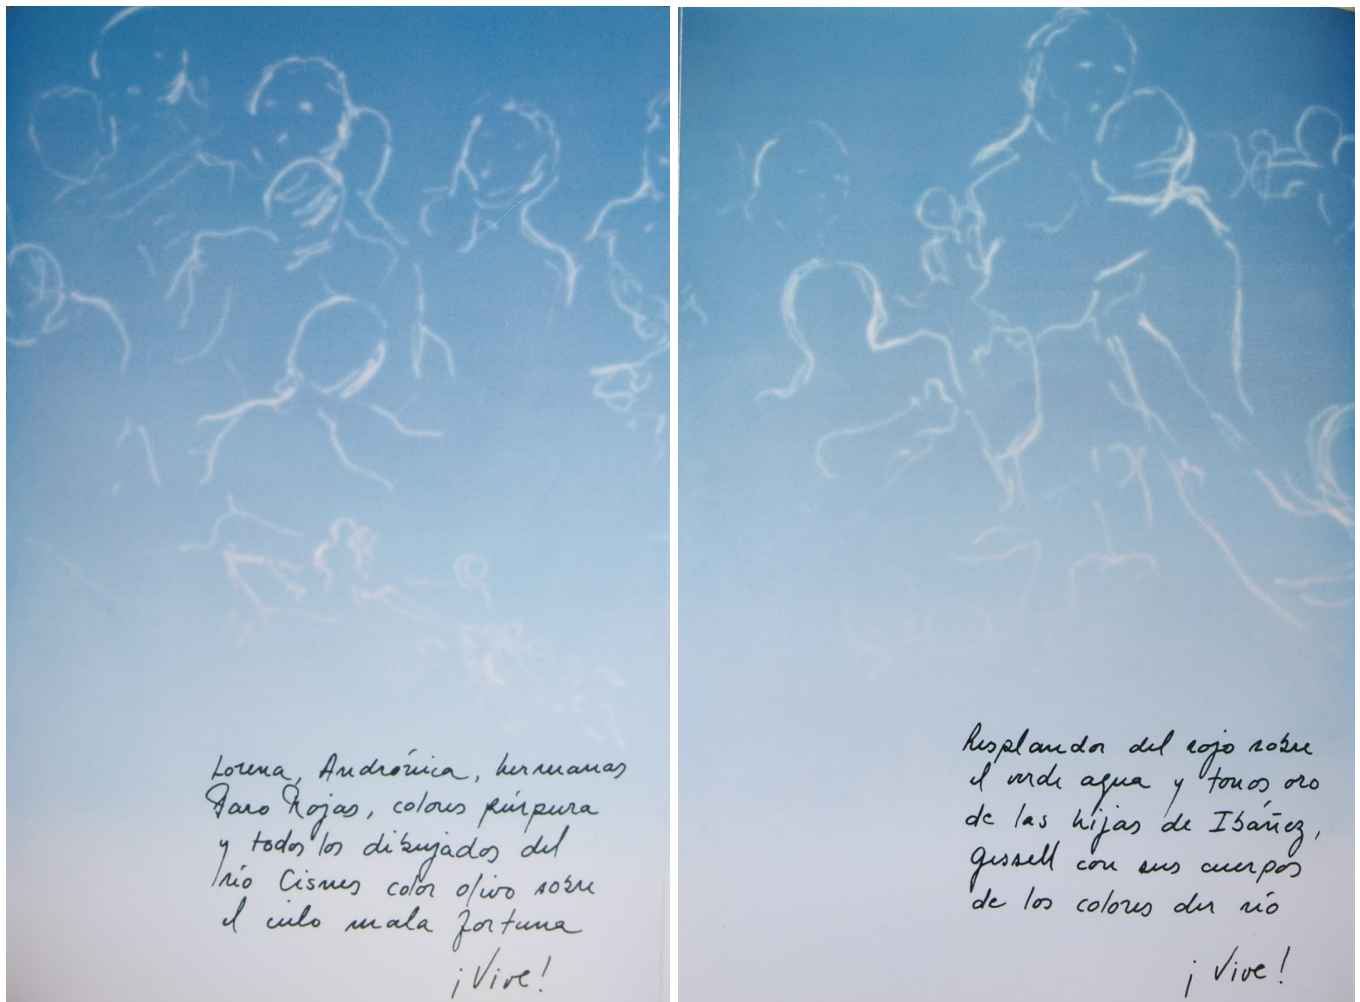 Lorena, Andrónica, hermanas
Paro Rojas, colores púrpura
y todos los dibujados del
río Cisnes color olivo sobre
el cielo mala fortuna
¡Vive!
Resplandor del rojo sobre
el verde agua y tonos oro
de las hijas de Ibáñez,
Gessell con sus cuerpos
de los colores der río
¡Vive!